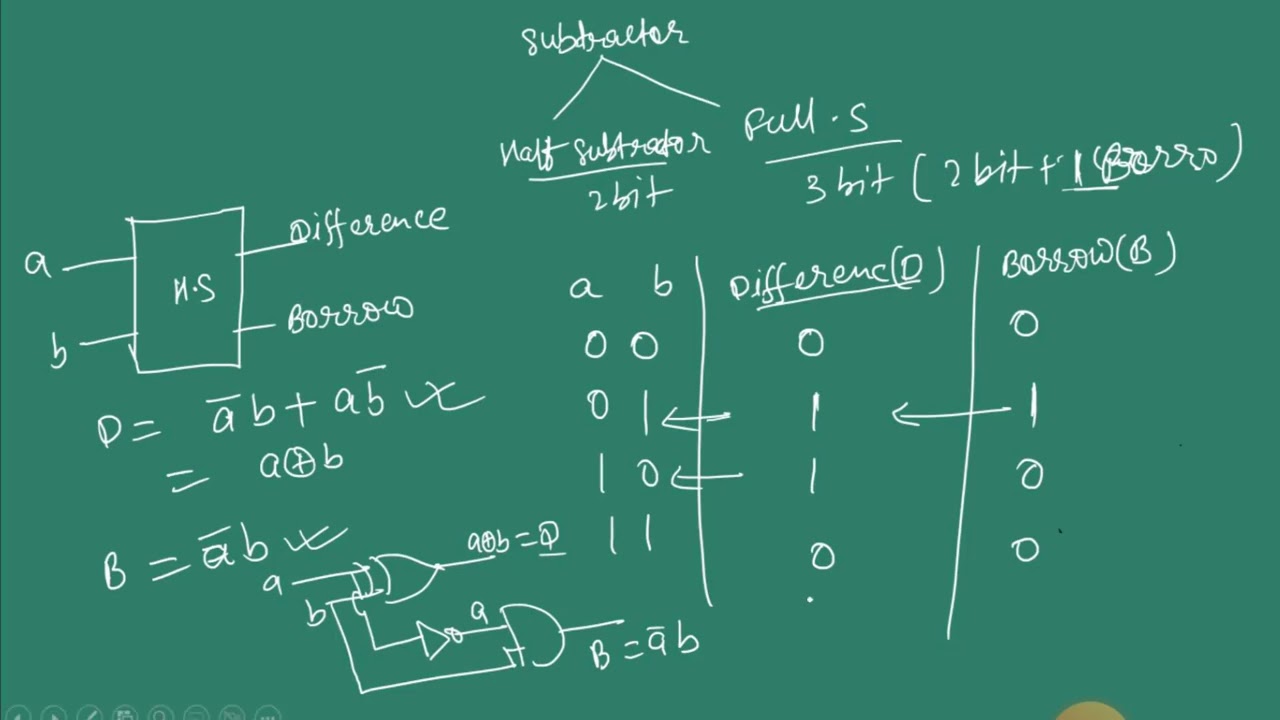 Subtractor
Half Subtractor
2bit
Full.S
3bit (2bit+1(Borro)
a
b
H.S
Difference
Borrow
a b Differenc(D) Borrow(B)
0 0 0 0
0 1 1 1
1 0 1 0
1 1 0 0
D = a̅b + ab̅
= a⊕b
B = a̅b
a
b
a⊕b=D
a
B = a̅b